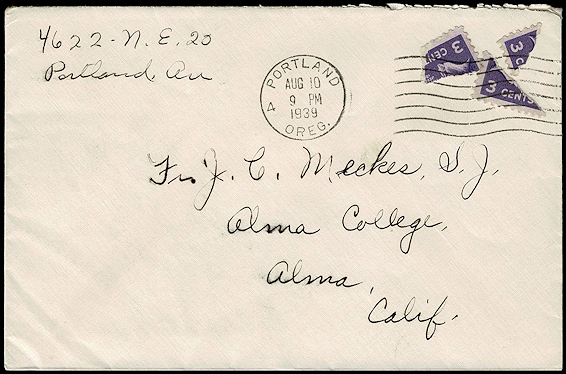 4622-N.E. 20
Portland, Ore
PORTLAND
AUG 10
9 PM
1939
OREG.
4
3 CEN
3 C
3 CENTS
Fr. J. C. Meckes, S.J.
Alma College,
Alma,
Calif.